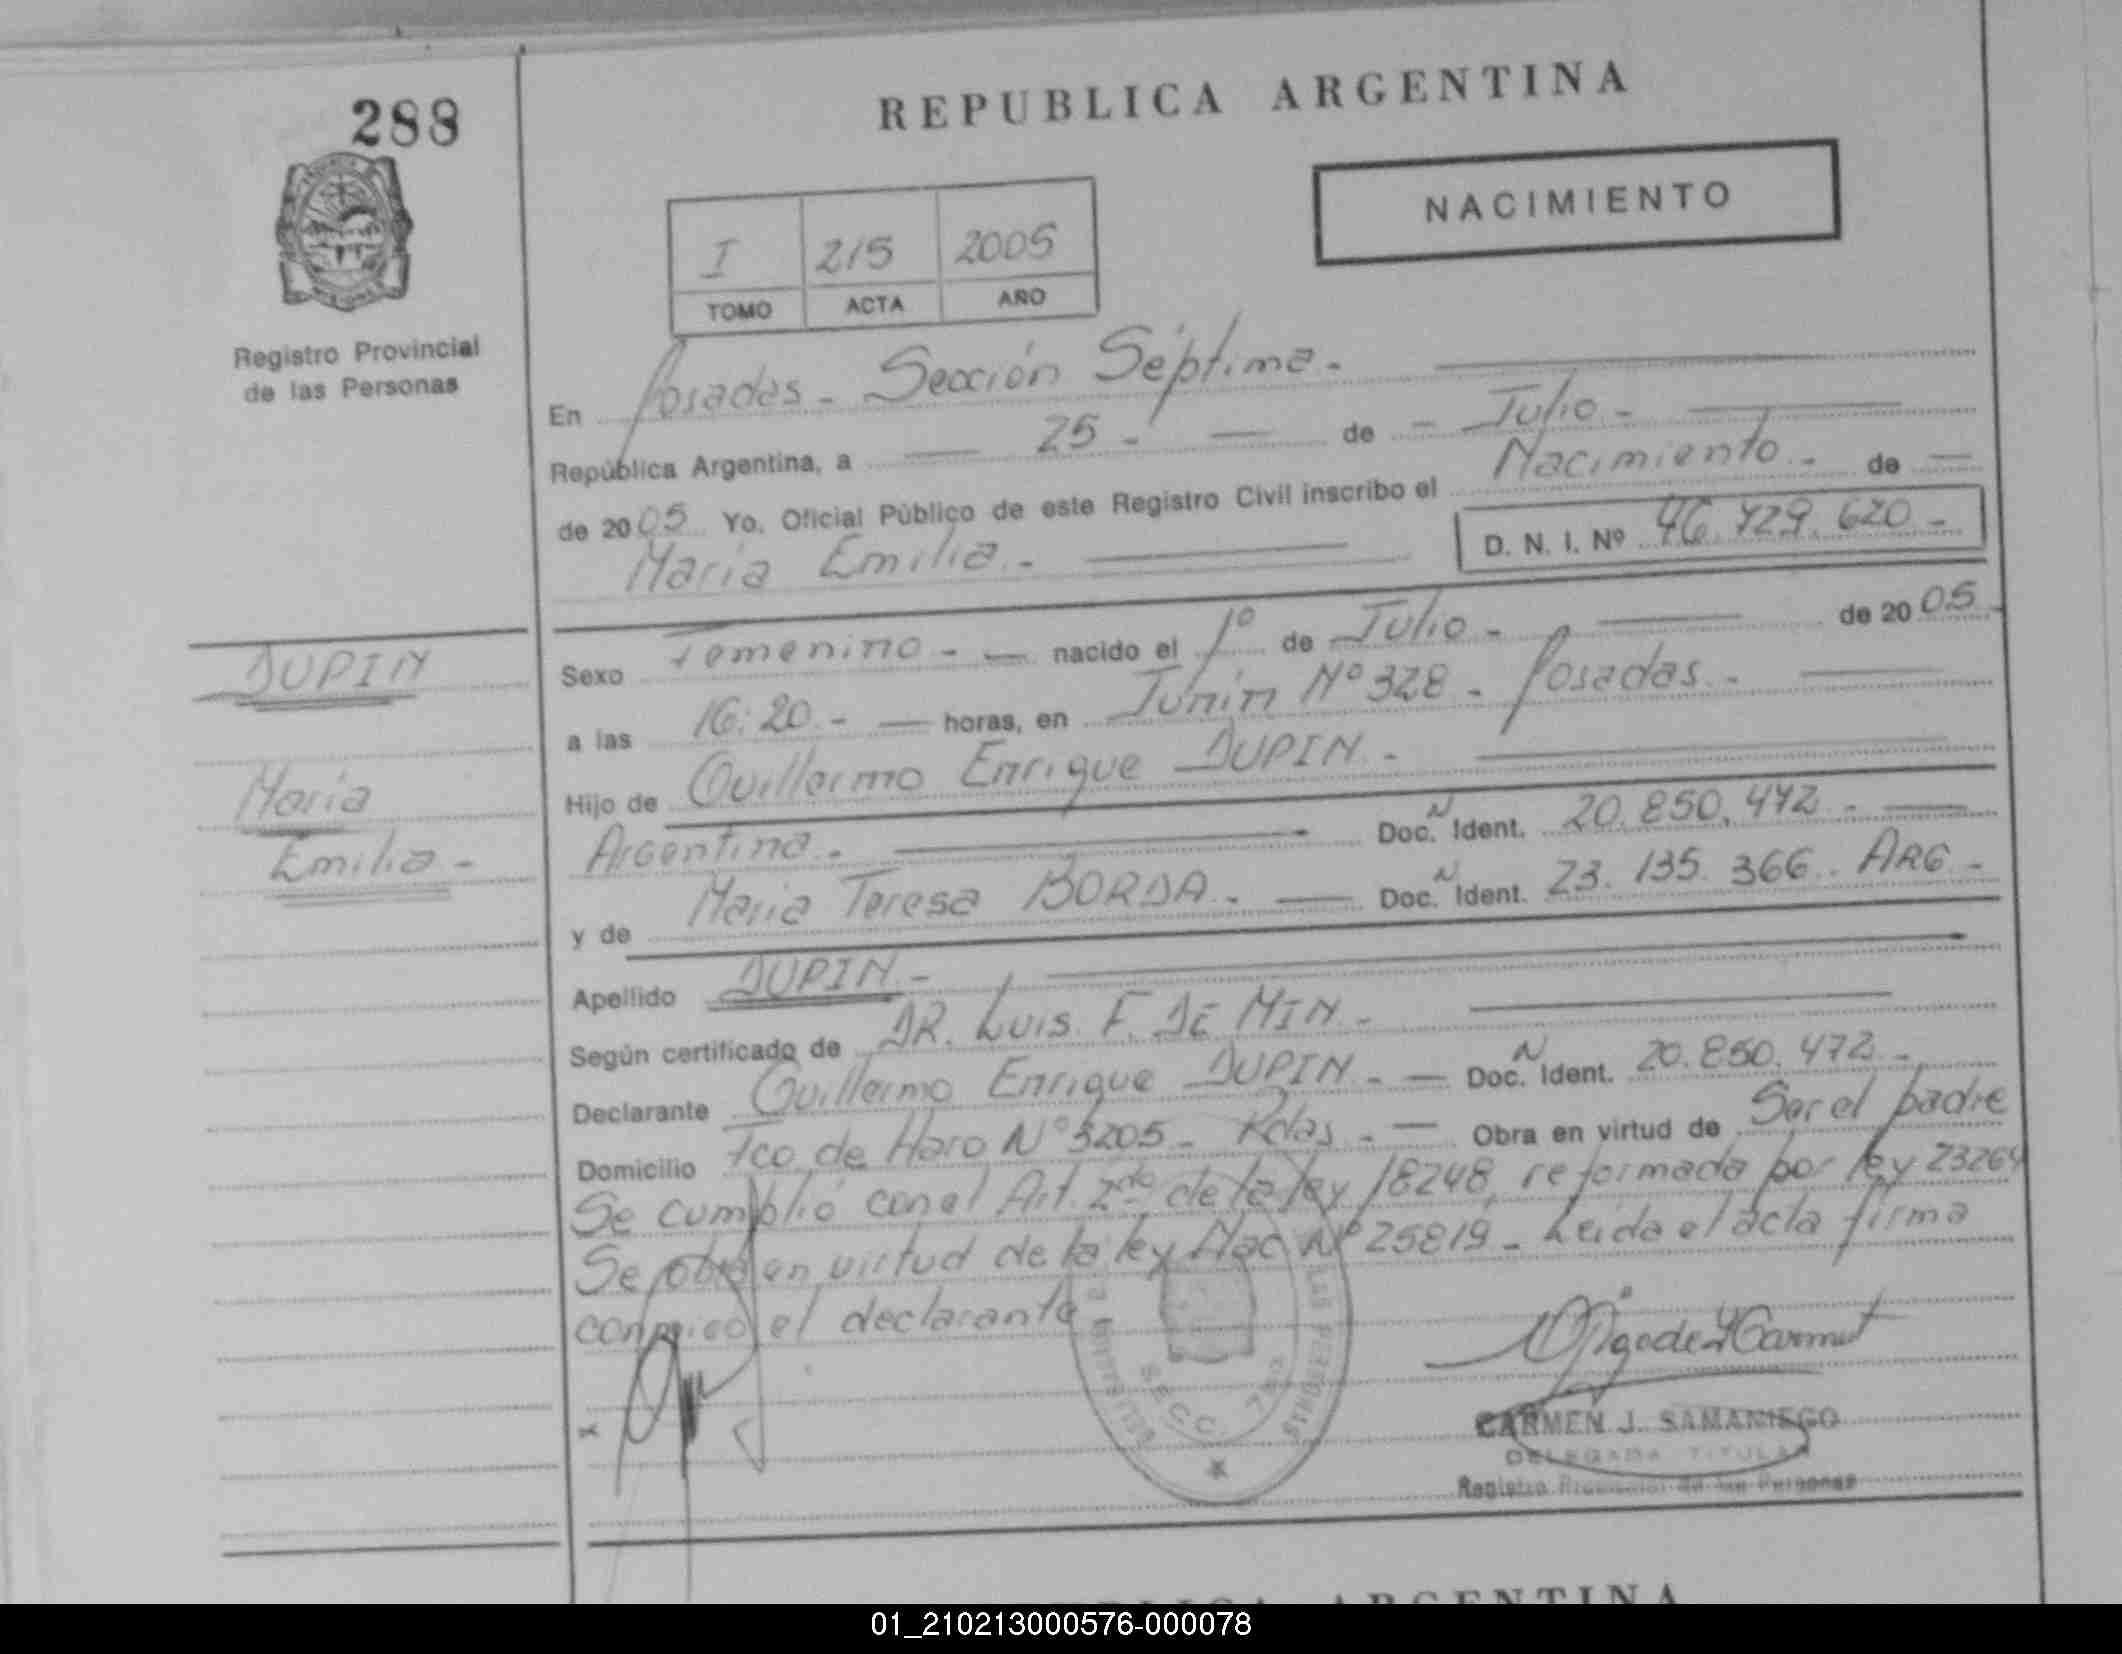 288
REPUBLICA ARGENTINA
NACIMIENTO
I 215 2005
TOMO ACTA AÑO
Registro Provincial
de las Personas
En Posadas - Sección Séptima -
República Argentina, a 25 - de - Julio -
de 2005 Yo, Oficial Público de este Registro Civil inscribo el Nacimiento - de
María Emilia - D. N. I. Nº 46.429.620 -
DUPIN
María
Emilia -
Sexo Femenino - nacido el 1º de Julio - de 2005
a las 16:20 - horas, en Junín Nº 328 - Posadas -
Hijo de Guillermo Enrique DUPIN -
Argentina - Doc. N Ident. 20.850.472 -
y de María Teresa BORDA - Doc. N Ident. 23.135.366. ARG -
Apellido DUPIN -
Según certificado de DR. Luis F. DE MIN -
Declarante Guillermo Enrique DUPIN - Doc. N Ident. 20.850.472 -
Domicilio Fco de Haro Nº 3205 - Pdas - Obra en virtud de Ser el padre
Se cumplió con el Art. 2do de la ley 18248, reformada por ley 23264
Se obra en virtud de la ley Nac Nº 25819 - Leída el acta firma
conmigo el declarante
x
SECC. 7ma
LAS PERSONAS
CARMEN J. SAMANIEGO
DELEGADA TITULAR
Registro Provincial de las Personas
REPUBLICA ARGENTINA
01_210213000576-000078